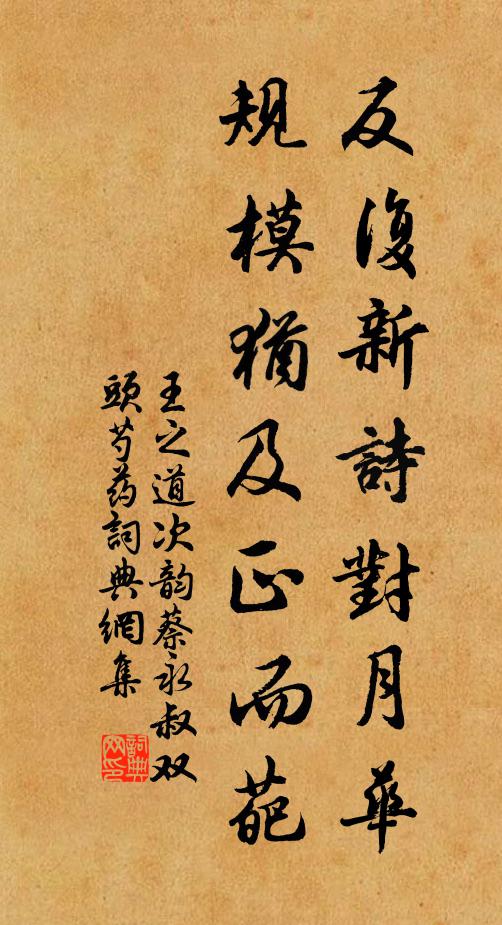 反復新詩對月華
規模猶及正而葩
王之道次韵蔡永叔双
頭芍药詞典網集
詞典
双印